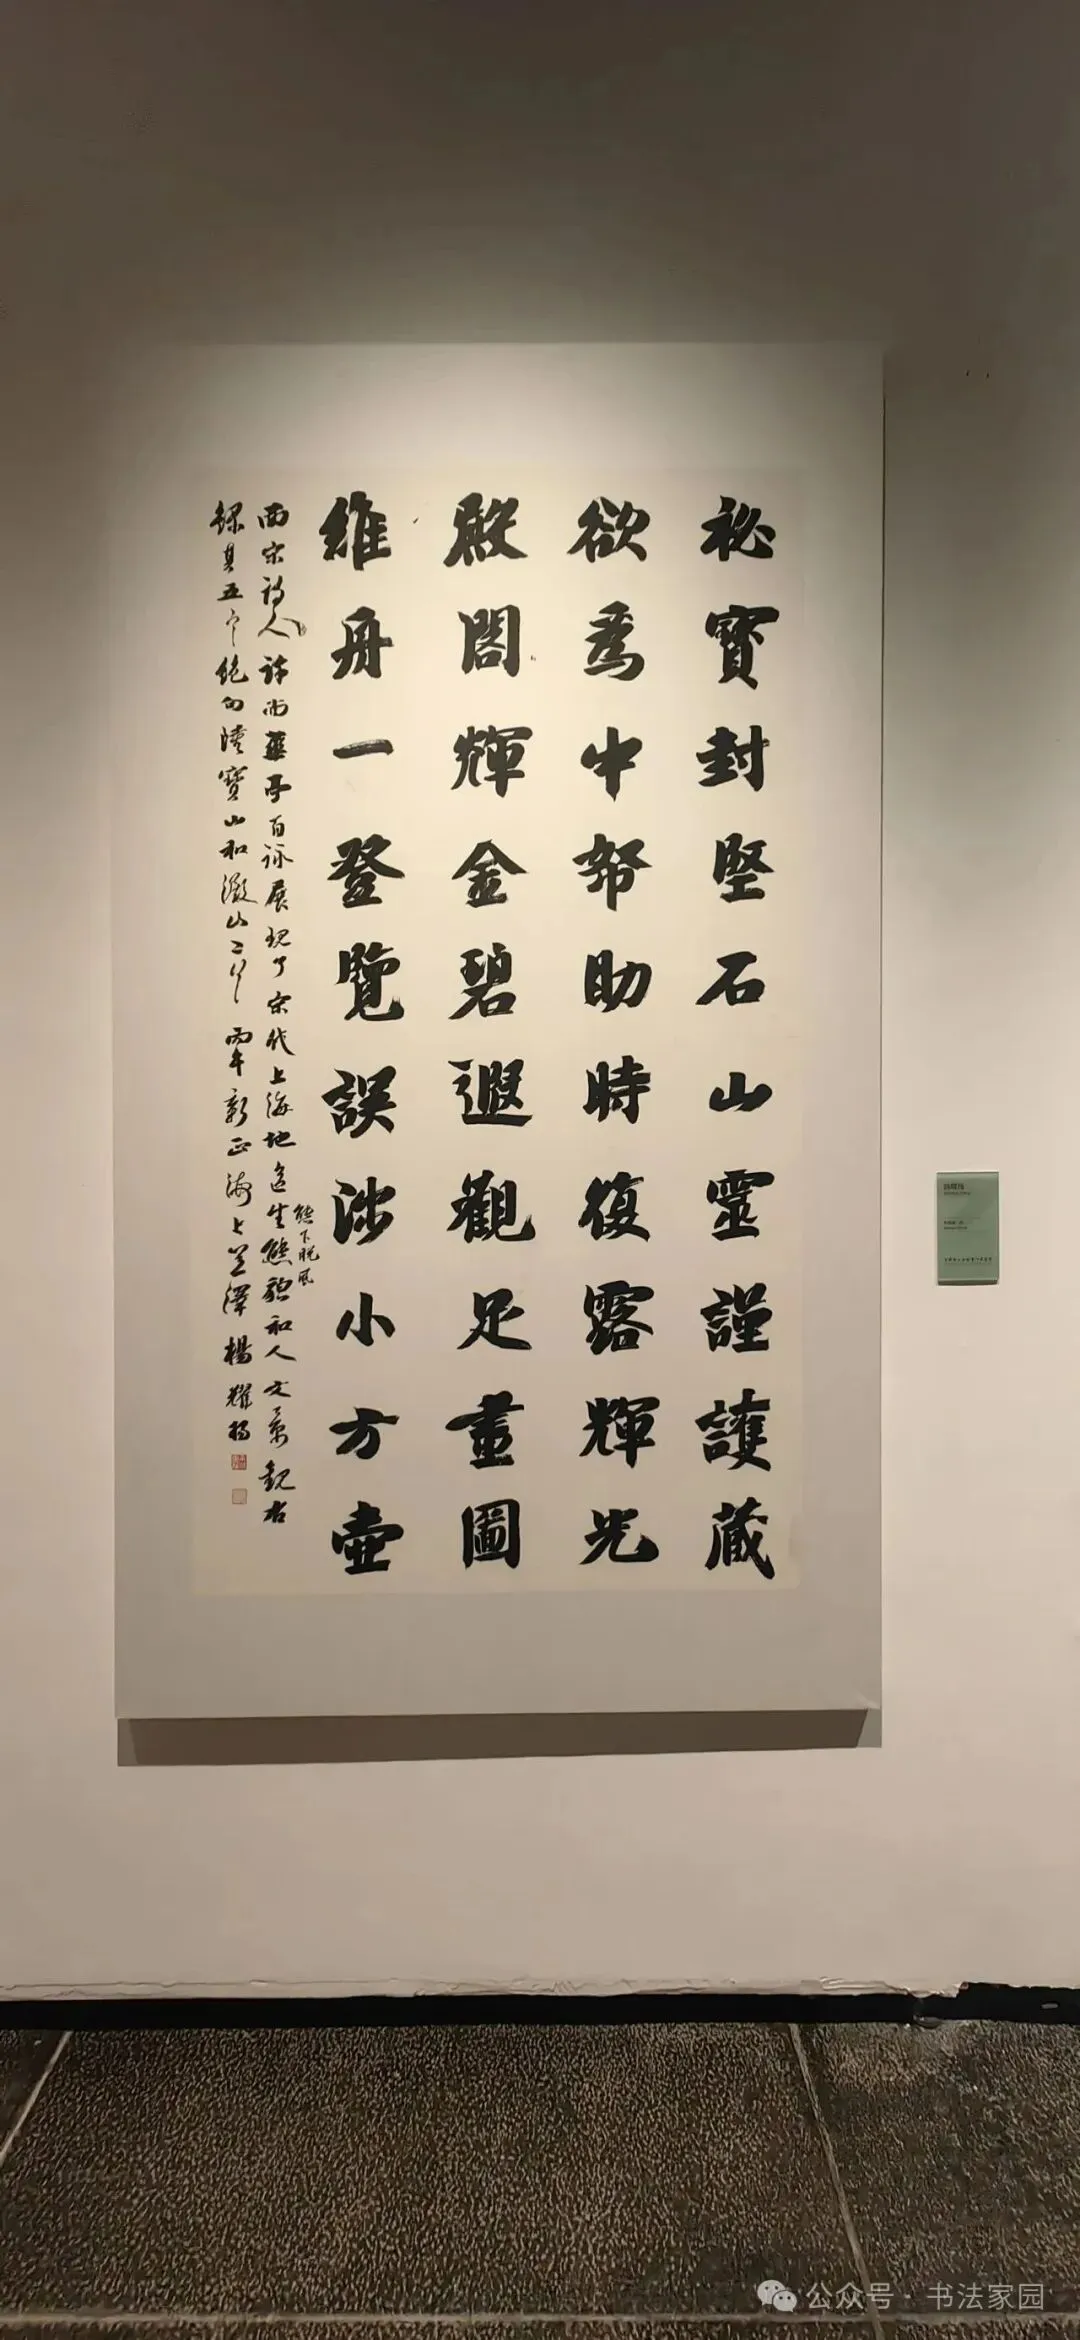 祕寳封堅石山靈謹護蔵
欲爲中帑助時復露輝光
殿閣輝金碧遐觀足畫圖
維舟一登覽誤涉小方壺
兩宋詩人許尚華亭百詠展現了宋代上海地區生態貌和人文景觀右
態下脫風
錄其五言絕句陸寶山和澱山二首丙午新正海上芝澤楊耀揚
公众号·书法家园